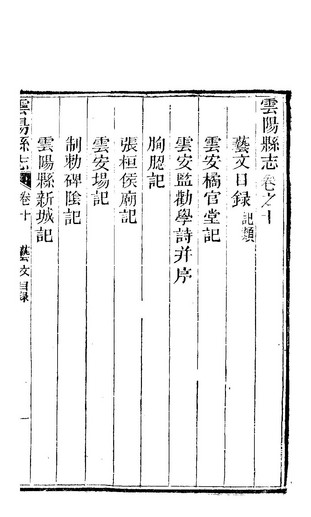 雲陽縣志卷之十
藝文目録記類
雲安橘官堂記
雲安監勸學詩并序
朐䏰記
張桓侯廟記
雲安塲記
制勅碑陰記
雲陽縣新城記
雲陽縣志 卷十 藝文目録 一